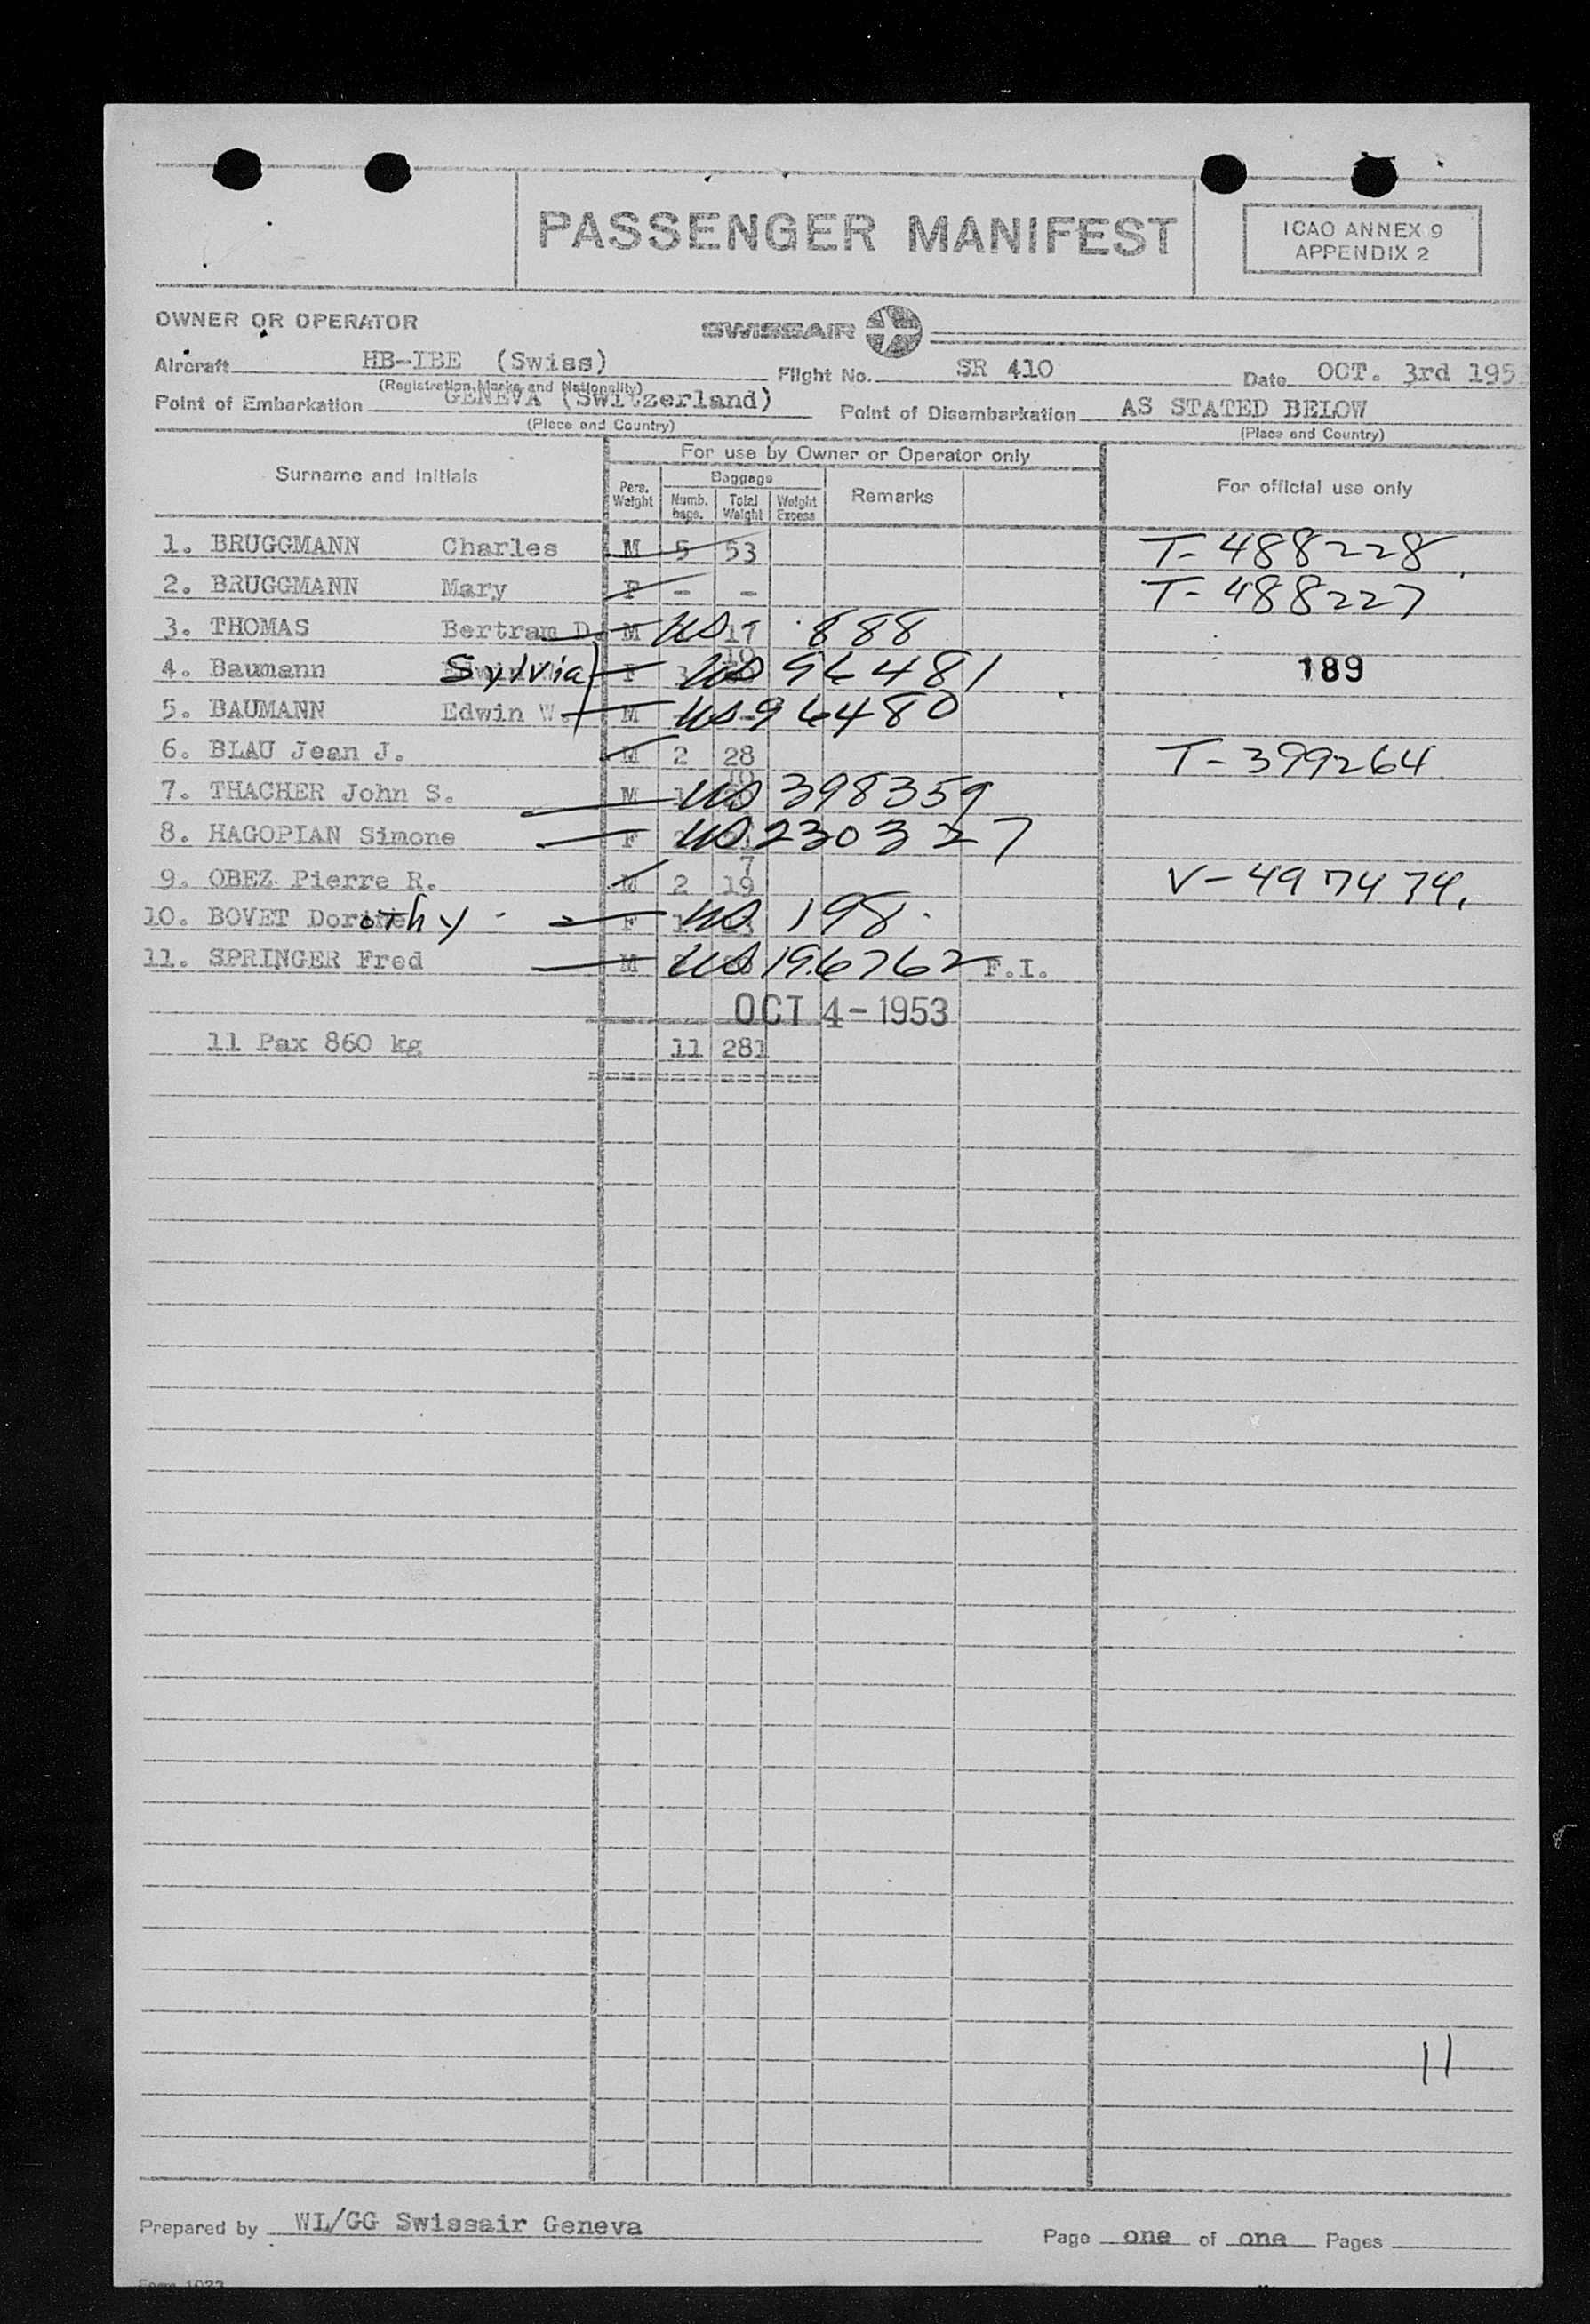 PASSENGER MANIFEST
ICAO ANNEX 9
APPENDIX 2
OWNER OR OPERATOR
SWISSAIR
Aircraft HB-IBE (Swiss) Flight No. SR 410 Date OCT. 3rd 195
(Registration Marks and Nationality)
Point of Embarkation GENEVA (Switzerland) Point of Disembarkation AS STATED BELOW
(Place and Country) (Place and Country)
Surname and Initials For use by Owner or Operator only For official use only
Pers. Weight Baggage Remarks
Numb. bags. Total Weight Weight Excess
1. BRUGGMANN Charles M 5 53 T-488228
2. BRUGGMANN Mary F - - T-488227
3. THOMAS Bertram D. M US 17 888
4. Baumann Sylvia F US 96481 189
5. BAUMANN Edwin W. M US 96480
6. BLAU Jean J. M 2 28 T-399264
7. THACHER John S. M US 398359
8. HAGOPIAN Simone F US 230327
7
9. OBEZ Pierre R. M 2 19 V-497474
10. BOVET Dorothy F US 198
11. SPRINGER Fred M US 196762 F.I.
OCT 4-1953
11 Pax 860 kg 11 281
11
Prepared by WL/GG Swissair Geneva Page one of one Pages